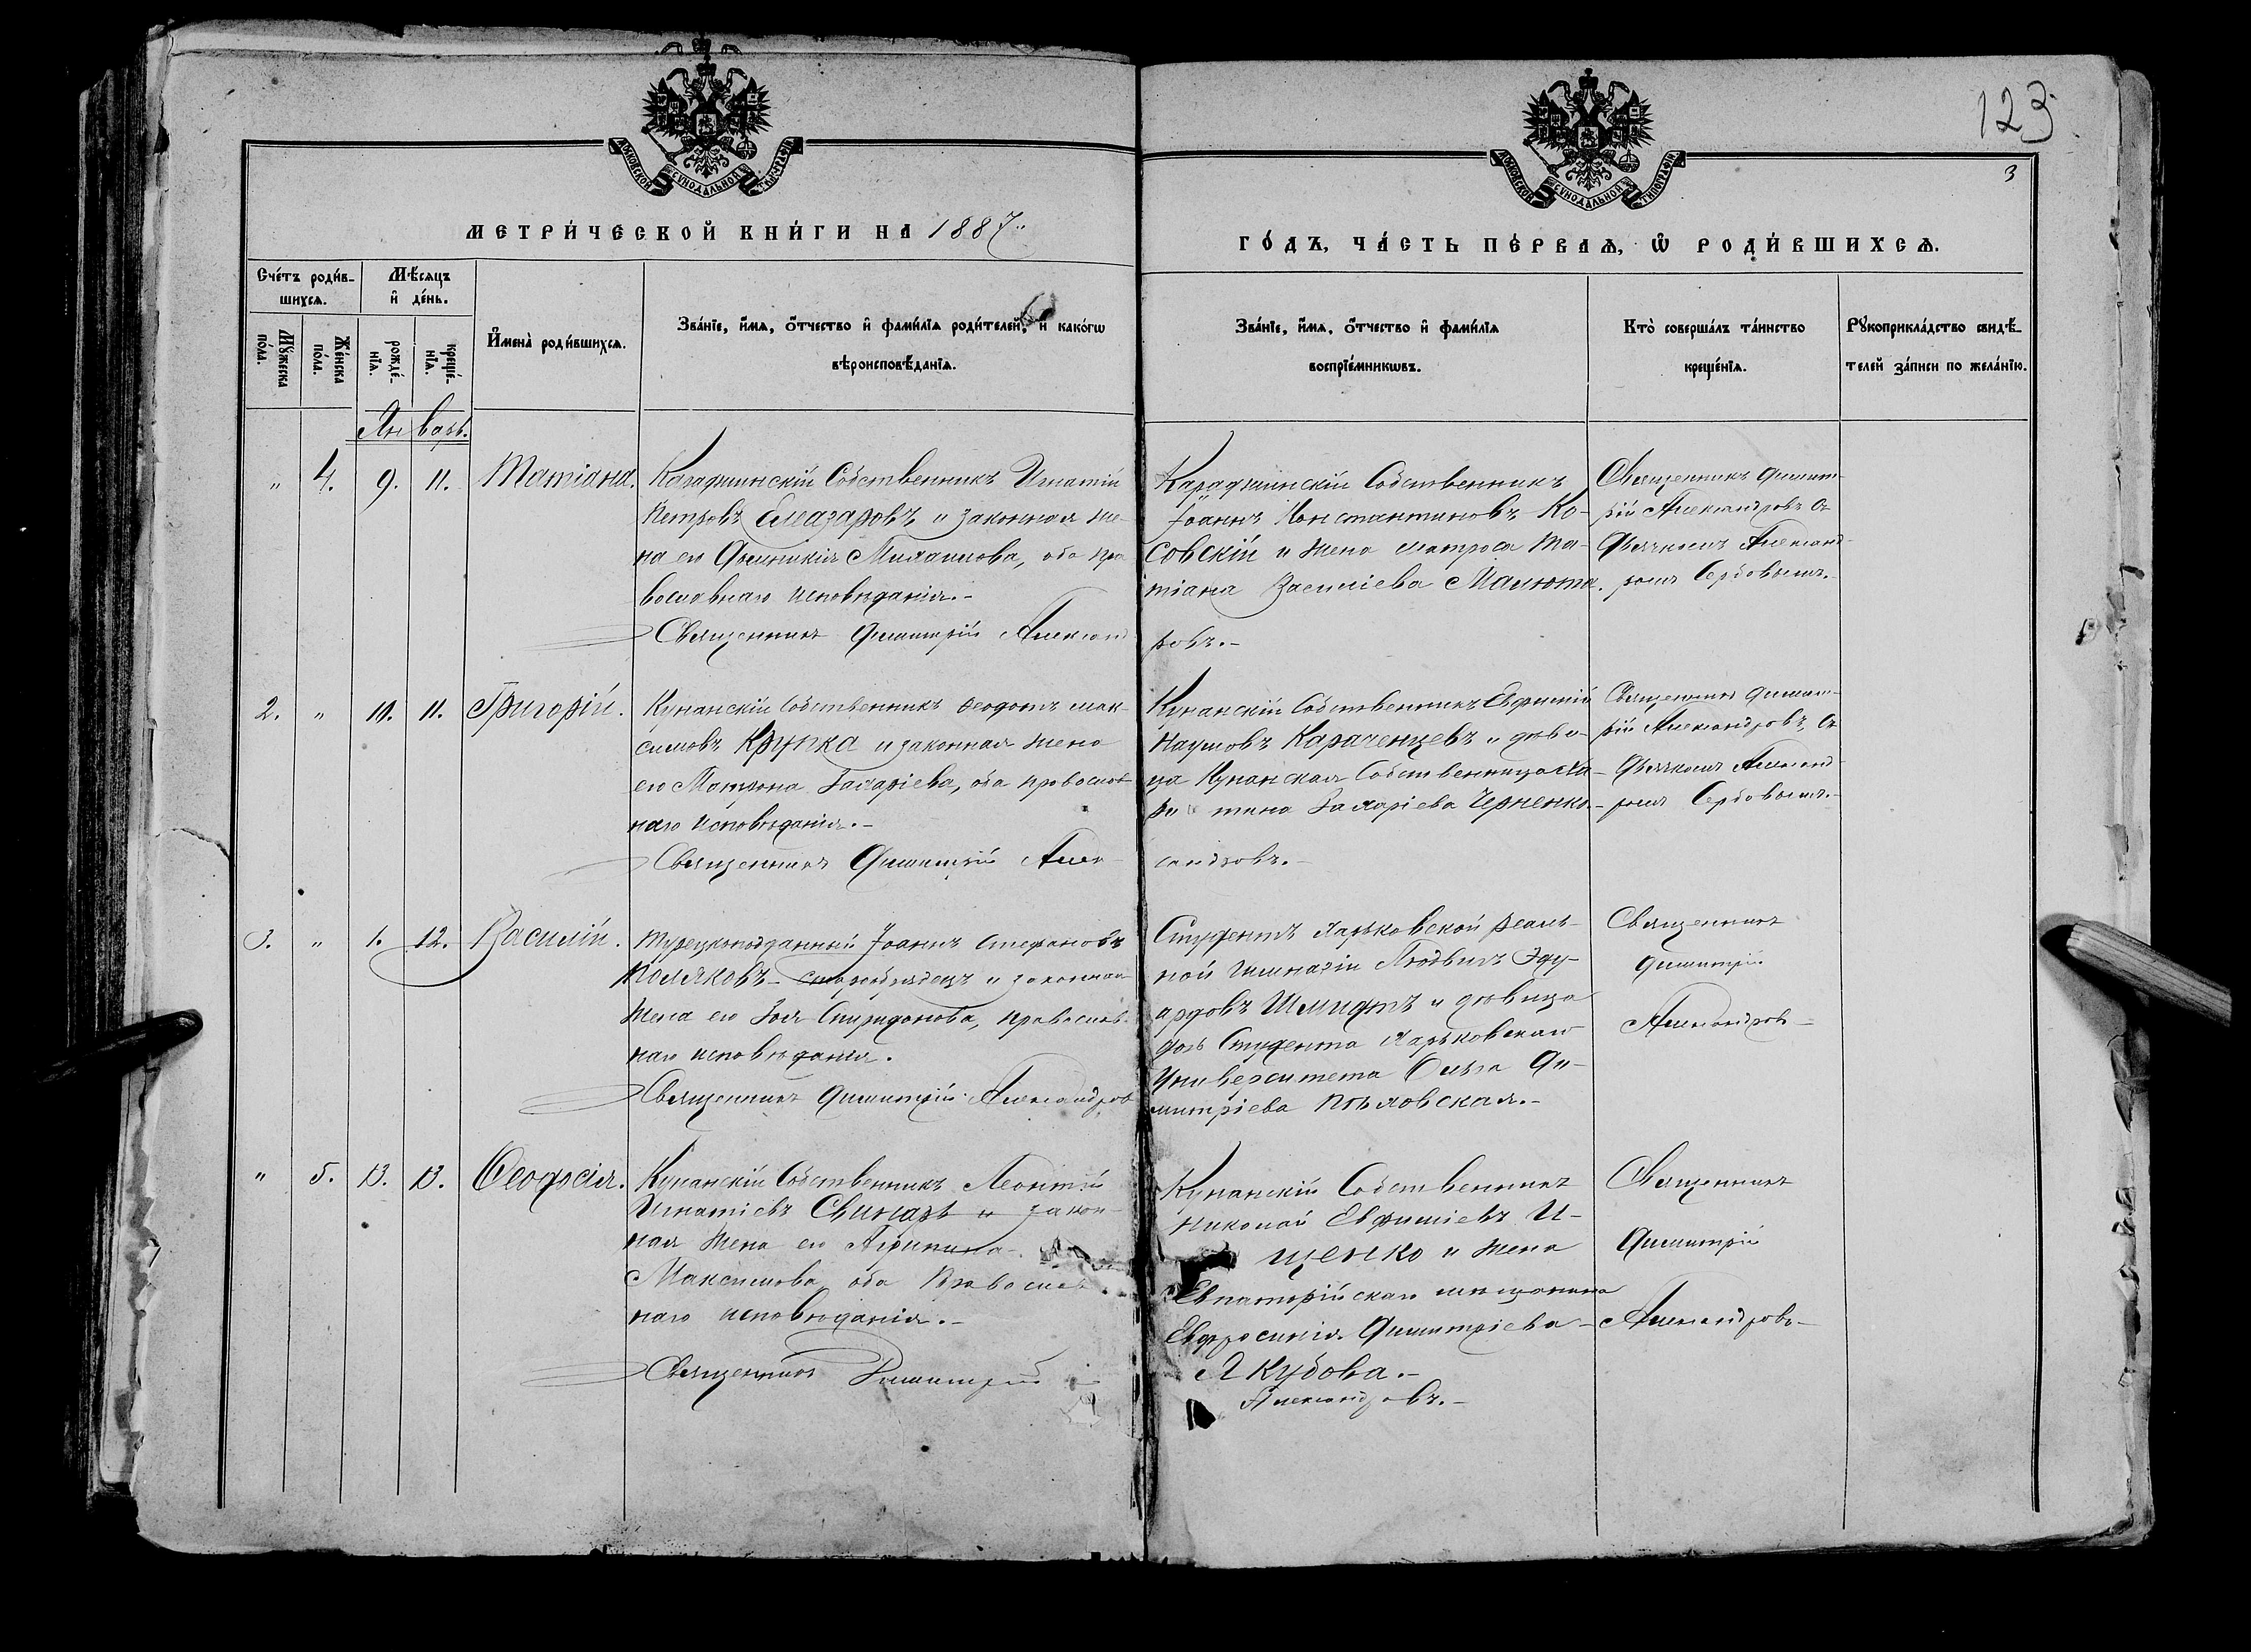 123
3
МЕТРИЧЕСКОЙ КНИГИ НА 1887
ГОДЪ, ЧАСТЬ ПЕРВАЯ, Ѡ РОДИВШИХСЯ.
Счетъ родившихся.
Мужеска пола.
Женска пола.
Мѣсяцъ и день.
рожденїя.
крещенїя.
Имена родившихся.
Званїе, имя, отчество и фамилїя родителей, и какогѡ
вѣроисповѣданїя.
Званїе, имя, отчество и фамилїя
воспрїемникѡвъ.
Кто совершалъ таинство
крещенїя.
Рукоприкладство свидѣ-
телей записи по желанїю.
Январь.
" 4. 9. 11. Татіана.
Караджинскій Собственникъ Игнатій
Петровъ Елеазаровъ и законная же-
на его, оба пра
вославнаго исповѣданія.-
Священникъ Димитрій Александ
Караджинскій Собственникъ
Іоаннъ Константиновъ Ко-
совскій и жена матроса Та-
тіана Василіева Малюта.
ровъ.-
Священникъ Димит-
рій Александровъ съ
Дьячкомъ Александ-
ромъ Сербовымъ.-
2. " 10. 11. Григорій.
Кунанскій Собственникъ Феодотъ Мак-
симовъ Крупка и законная жена
его Матрона Захаріева, оба православ
наго исповѣданія.-
Священникъ Димитрій Алек-
Кунанскій Собственникъ Евфимій
Наумовъ Караченцевъ и дѣви-
ца Кунанская Собственница Ха-
ритина Захаріева Черненко.-
сандровъ.-
Священникъ Димит-
рій Александровъ, съ
Дьячкомъ Александ-
ромъ Сербовымъ.-
3. " 1. 12. Василій.
Турецкоподданный Іоаннъ Стефановъ
Поляковъ- старообрядецъ и законная
жена его Зоя Спиридонова, православ-
наго исповѣданія.
Священникъ Димитрій Александров
Студентъ Харьковской реаль-
ной Гимназіи Людвигъ Эду-
ардовъ Шмидтъ и дѣвица
дочь Студента Харьковскаго
Университета Ольга Ди-
митріева.-
Священникъ
Димитрій
Александров-
" 5. 13. 13. Феодосія.
Кунанскій Собственникъ Леонтій
Игнатіевъ Свинарь и закон-
ная жена его Агрипина-
Максимова, оба Православ
наго исповѣданія.-
Священникъ Димитрій
Кунанскій Собственникъ
Николай Евфиміевъ И-
щенко и жена
Евпаторійскаго мѣщанина
Евфросинія Димитріева-
Якубова.-
Александровъ.-
Священникъ
Димитрій
Александровъ-